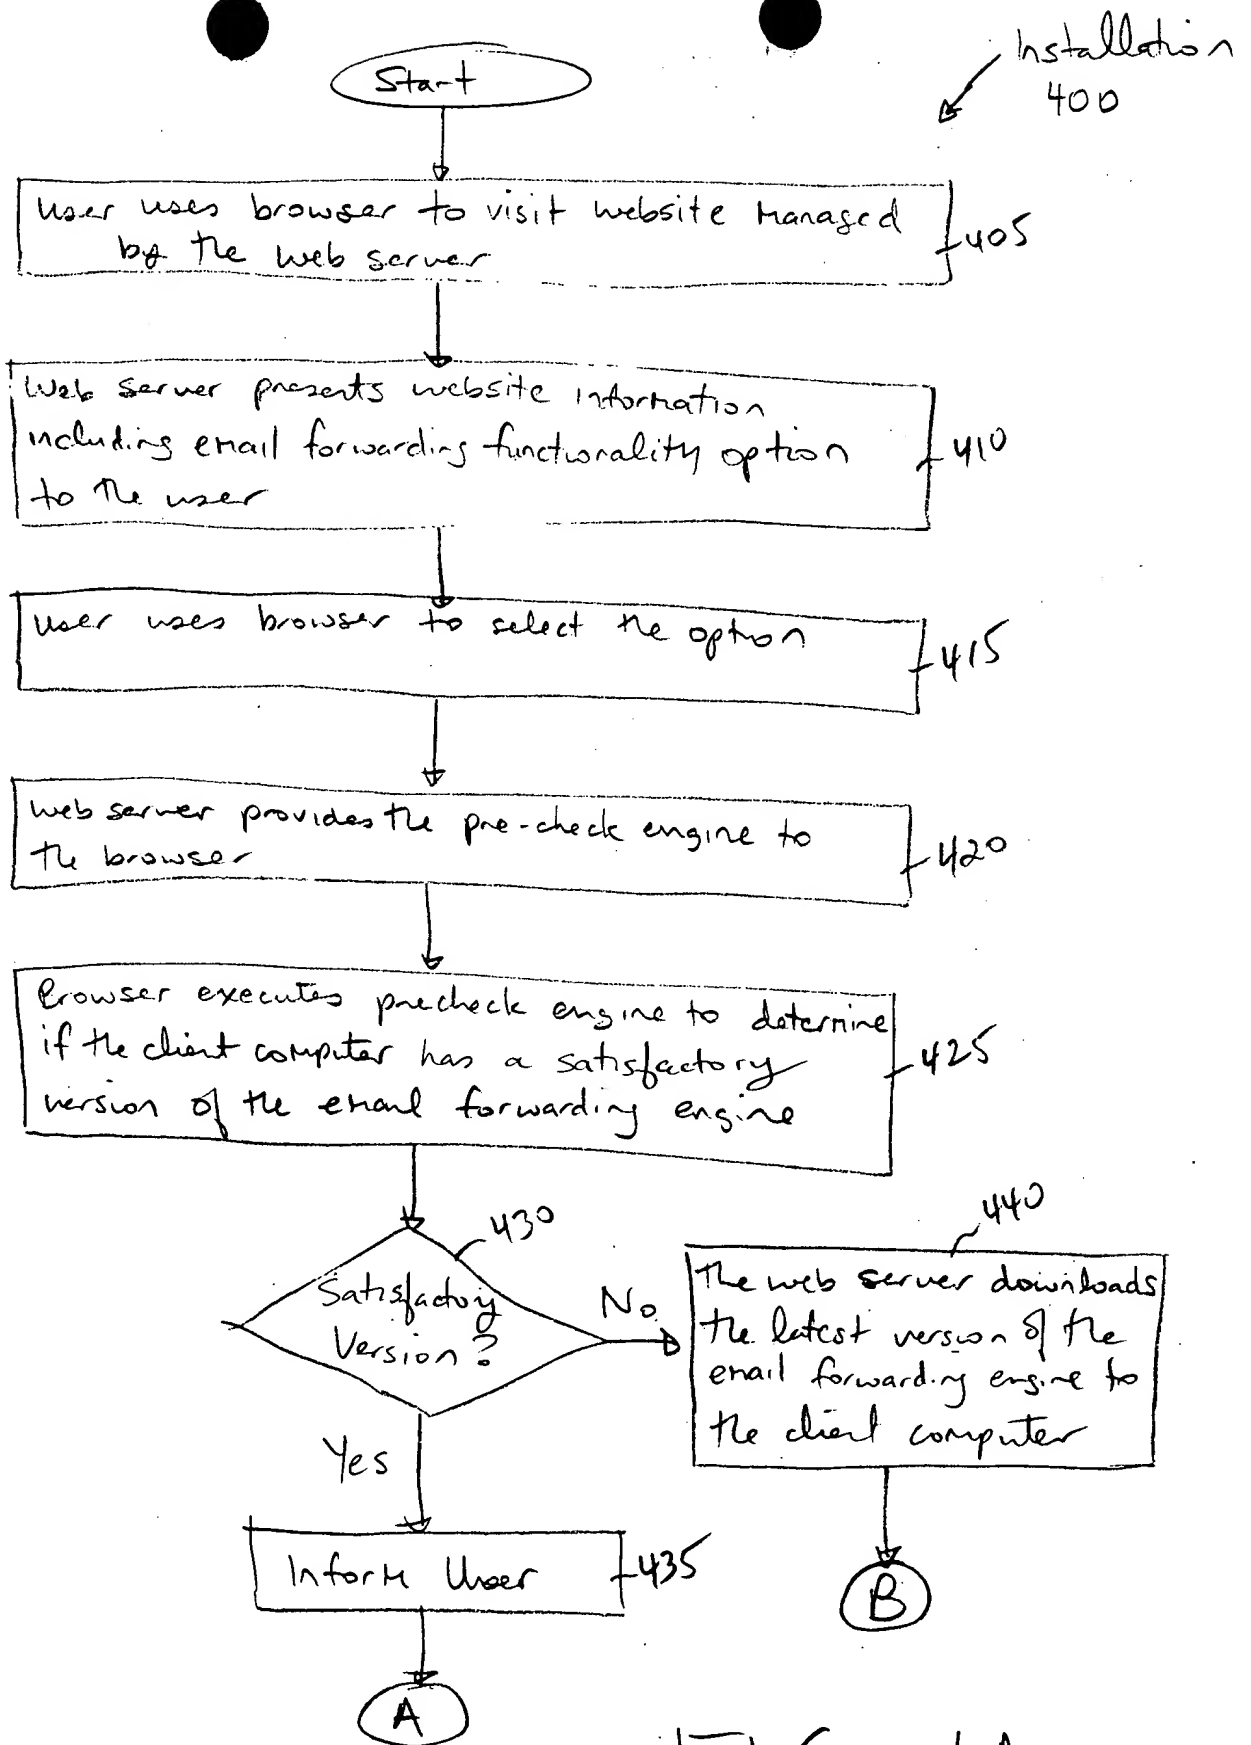 Installation
400
Start
User uses browser to visit website managed
by the web server
405
Web server presents website information
including email forwarding functionality option
to the user
410
User uses browser to select the option
415
web server provides the pre-check engine to
the browser
420
Browser executes precheck engine to determine
if the client computer has a satisfactory
version of the email forwarding engine
425
430
Satisfactory
Version?
No
Yes
440
The web server downloads
the latest version of the
email forwarding engine to
the client computer
Inform User
435
B
A